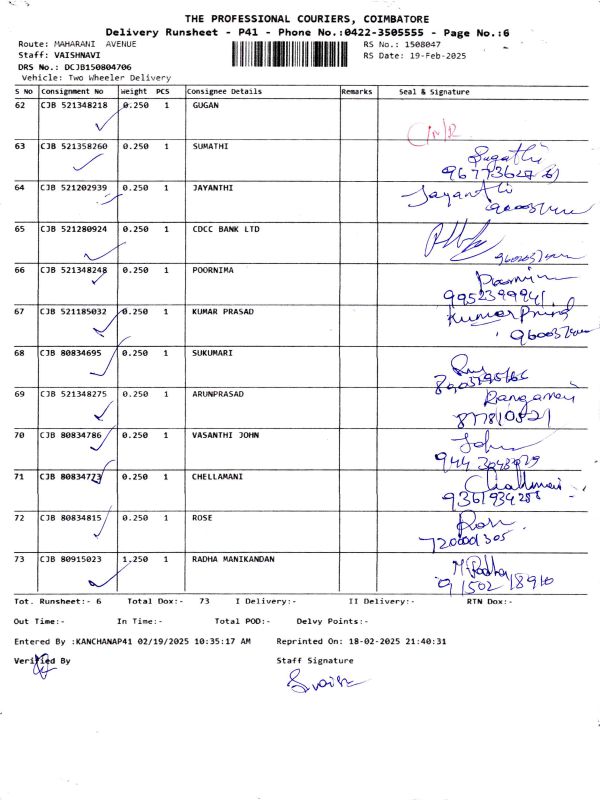 THE PROFESSIONAL COURIERS, COIMBATORE
Delivery Runsheet - P41 - Phone No.:0422-3505555 - Page No.:6
Route: MAHARANI AVENUE RS No.: 1508047
Staff: VAISHNAVI RS Date: 19-Feb-2025
DRS No.: DCJB150804706
Vehicle: Two Wheeler Delivery
S No Consignment No Weight PCS Consignee Details Remarks Seal & Signature
62 CJB 521348218 0.250 1 GUGAN
63 CJB 521358260 0.250 1 SUMATHI
64 CJB 521202939 0.250 1 JAYANTHI
Jayanthi
65 CJB 521280924 0.250 1 CDCC BANK LTD
66 CJB 521348248 0.250 1 POORNIMA
9952399941
67 CJB 521185032 0.250 1 KUMAR PRASAD
Kumar
68 CJB 80834695 0.250 1 SUKUMARI
69 CJB 521348275 0.250 1 ARUNPRASAD
70 CJB 80834786 0.250 1 VASANTHI JOHN
John
71 CJB 80834773 0.250 1 CHELLAMANI
72 CJB 80834815 0.250 1 ROSE
73 CJB 80915023 1.250 1 RADHA MANIKANDAN
M. Radha
Tot. Runsheet:- 6 Total Dox:- 73 I Delivery:- II Delivery:- RTN Dox:-
Out Time:- In Time:- Total POD:- Delvy Points:-
Entered By :KANCHANAP41 02/19/2025 10:35:17 AM Reprinted On: 18-02-2025 21:40:31
Verified By Staff Signature